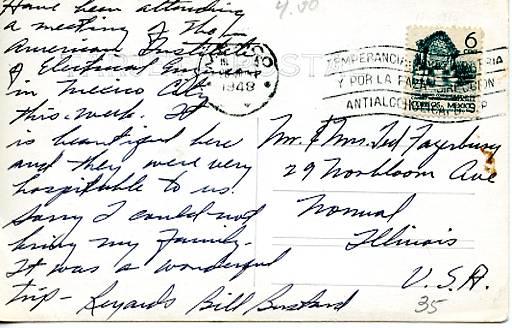 Have been attending
a meeting of the
American Institute
of Electrical Engrs
in Mexico City
this week. It
is beautiful here
and they were very
hospitable to us.
Sorry I could not
bring my family.
It was a wonderful
trip - Regards Bill
4.00
MEXICO
1948
TEMPERANCIA
Y POR LA
ANTIALCO
6
CORREOS MEXICO
Mr. & Mrs. Ted
29 Norbloom Ave
Normal
Illinois
U.S.A.
35